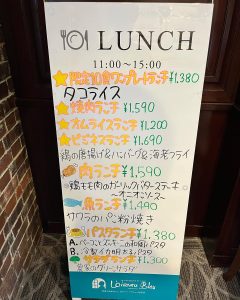 LUNCH
11:00~15:00
限定10食ワンプレートランチ¥1,380
タコライス
焼肉ランチ ¥1,590
オムライスランチ ¥1,200
ビジネスランチ ¥1,690
鶏の唐揚げ&ハンバーグ&海老フライ
肉ランチ ¥1,590
鶏モモ肉のガーリックバターステーキ
~オニオンソース~
魚ランチ ¥1,490
サワラのパン粉焼き
パスタランチ ¥1,380
A.ベーコンときのこの和風パスタ
B.冷製イカ明太子パスタ
サラダランチ ¥1,300